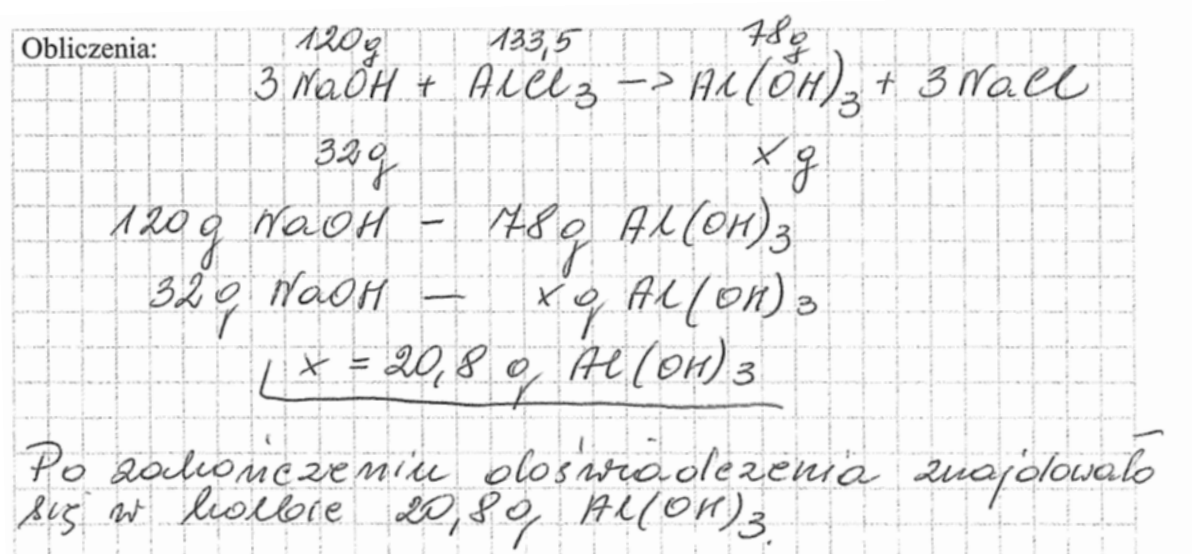 Obliczenia:
120g 133,5 78g
3 NaOH + AlCl₃ -> Al(OH)₃ + 3 NaCl
32g x g
120g NaOH - 78g Al(OH)₃
32g NaOH — x g Al(OH)₃
x = 20,8 g Al(OH)₃
Po zakończeniu doświadczenia znajdowało
się w kolbie 20,8g Al(OH)₃.